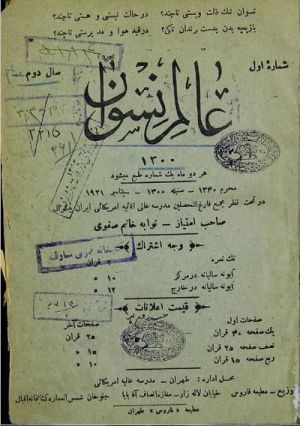 نسوان تنگ ذلت و پستی تا چند؟ در حالت نیستی و هستی تا چند؟
بازیچه بدن بدست رندان تا کی؟ در قید هوا و مد پرستی تا چند؟
شمارهٔ اول
سال دوم
عالم نسوان
۱۳۰۰
هر دو ماه یک شماره طبع میشود
محرم ۱۳۴۰ – سنبله ۱۳۰۰ – سپتامبر ۱۹۲۱
در تحت نظر مجمع فارغ التحصیلین مدرسه عالی اناثیه امریکائی ایران
صاحب امتیاز – نوابه خانم صفوی
وجه اشتراک
تک نمره ۲ قران
آبونه سالیانه در مرکز ۱۰ »
آبونه سالیانه در خارج ۱۲ »
قیمت اعلانات
صفحات اول صفحات آخر
یک صفحه ۳۰ قران ۲۵ قران
نصف صفحه ۲۵ قران ۱۵ »
ربع صفحه ۱۵ قران ۱۰ »
محل اداره: طهران – مدرسه عالیه امریکائی
توزیع – مطبعه فاروس خیابان لاله زار – مغازه انصاف آقا بابا جلوخان شمس العماره کتابخانه اقبال
مطبعه « فاروس » طهران